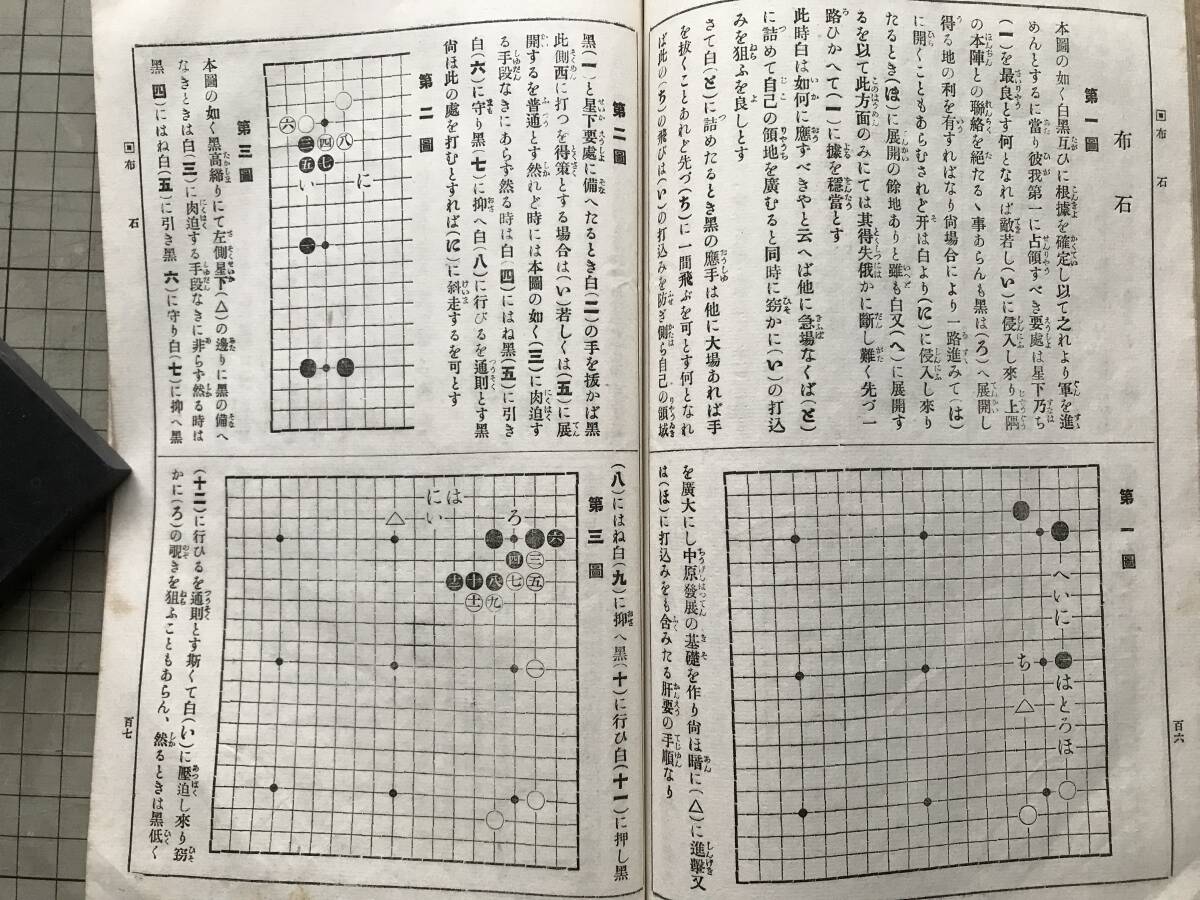 ▣布石
布石
第一圖
本圖の如く白黑互ひに根據を確定し以て之れより軍を進
めんとするに當り彼我第一に占領すべき要處は星下乃ち
(一)を最良とす何となれば敵若し(い)に侵入し來り上隅
の本陣との聯絡を絕たるゝ事あらんも黑は(ろ)へ展開し
得る地の利を有すればなり尙場合により一路進みて(は)
に開くこともあらむされど开は白より(に)に侵入し來り
たるとき(ほ)に展開の餘地ありと雖も白又(へ)に展開す
るを以て此方面のみにては其得失俄かに斷し難く先づ一
路ひかへて(一)に據を穩當とす
此時白は如何に應すべきやと云へば他に急場なくば(と)
に詰めて自己の領地を廣むると同時に窃かに(い)の打込
みを狙ふを良しとす
さて白(と)に詰めたるとき黑の應手は他に大場あれば手
を拔くことあれど先づ(ち)に一間飛ぶを可とす何となれ
ば此の(ち)の飛びは(い)の打込みを防ぎ側ら自己の領域
第一圖
へいに
はとろほ
ち
△
を廣大にし中原發展の基礎を作り尙ほ暗に(△)に進擊又
は(ほ)に打込みをも含みたる肝要の手順なり
百六
第二圖
黑(一)と星下要處に備へたるとき白(二)の手を拔かば黑
此側西に打つを得策とする場合は(い)若しくは(五)に展
開するを普通とす然れど時には本圖の如く(三)に肉迫す
る手段なきにあらず然る時は白(四)にはね黑(五)に引き
白(六)に守り黑(七)に抑へ白(八)に行びるを通則とす黑
尙ほ此の處を打むとすれば(に)に斜走するを可とす
第二圖
六
三四八
五七
い
に
一
第三圖
本圖の如く黑高締りにて左側星下(△)の邊りに黑の備へ
なきときは白(三)に肉迫する手段なきに非らず然る時は
黑(四)にはね白(五)に引き黑(六)に守り白(七)に抑へ黑
(八)にはね白(九)に抑へ黑(十)に行び白(十一)に押し黑
第三圖
は
に
い
△
ろ
六
四三
十二十八七五
十一九
一
(十二)に行ひるを通則とす斯くて白(い)に壓迫し來り窃
かに(ろ)の覗きを狙ふこともあらん、然るときは黑低く
▣布石
百七